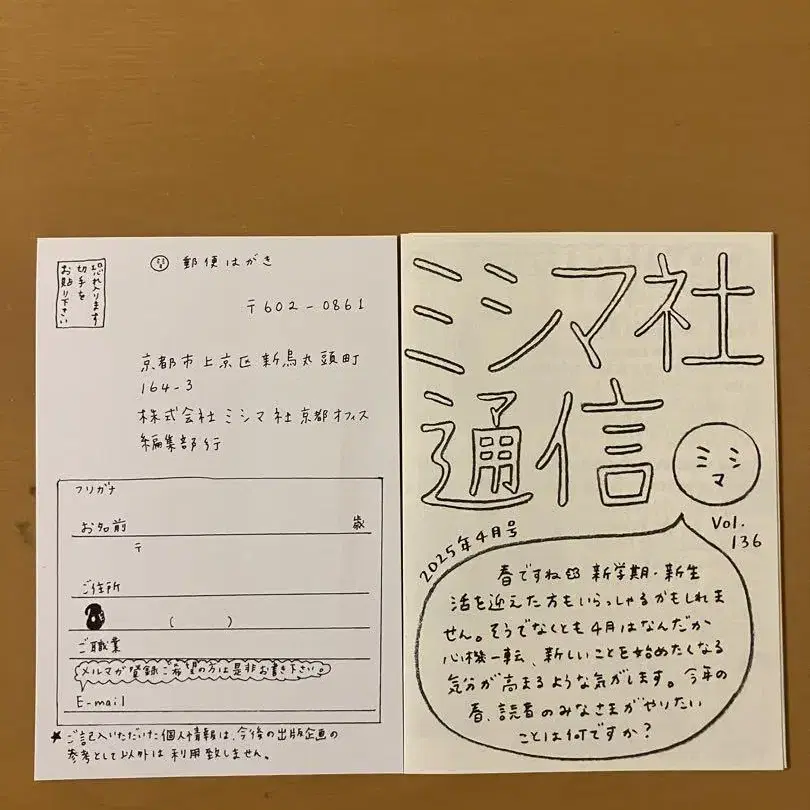 恐れ入ります
切手を
お貼り下さい
郵便はがき
〒602-0861
京都市上京区新烏丸頭町
164-3
株式会社ミシマ社京都オフィス
編集部行
フリガナ
お名前 歳
〒
ご住所
( )
ご職業
メルマガ登録ご希望の方は是非お書き下さい。
E-mail
★ご記入いただいた個人情報は、今後の出版企画の
参考として以外は利用致しません。
ミシマ社
通信
ミシ
マ
Vol.
136
2025年4月号
春ですね 新学期・新生
活を迎えた方もいらっしゃるかもしれま
せん。そうでなくとも4月はなんだか
心機一転、新しいことを始めたくなる
気分が高まるような気がします。今年の
春、読者のみなさまがやりたい
ことは何ですか?